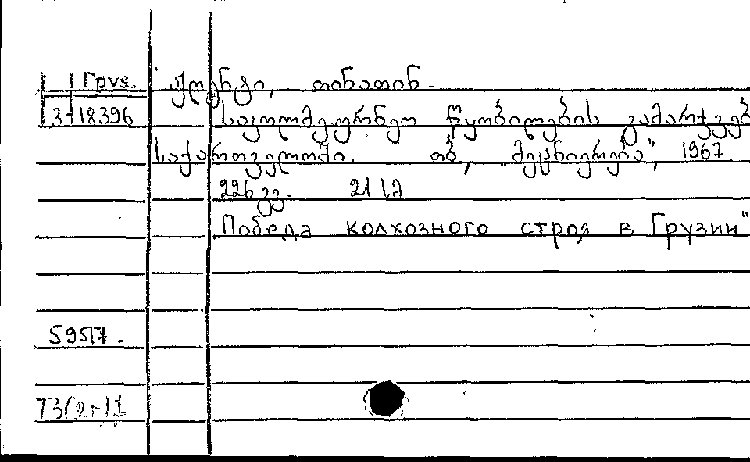 Груз.
3-18396
ჟღენტი, თინათინ.
საკოლმეურნეო წყობილების გამარჯვებ
საქართველოში. თბ, „მეცნიერება“, 1967
226 გვ. 21 სმ
Победа колхозного строя в Грузии"
5957.